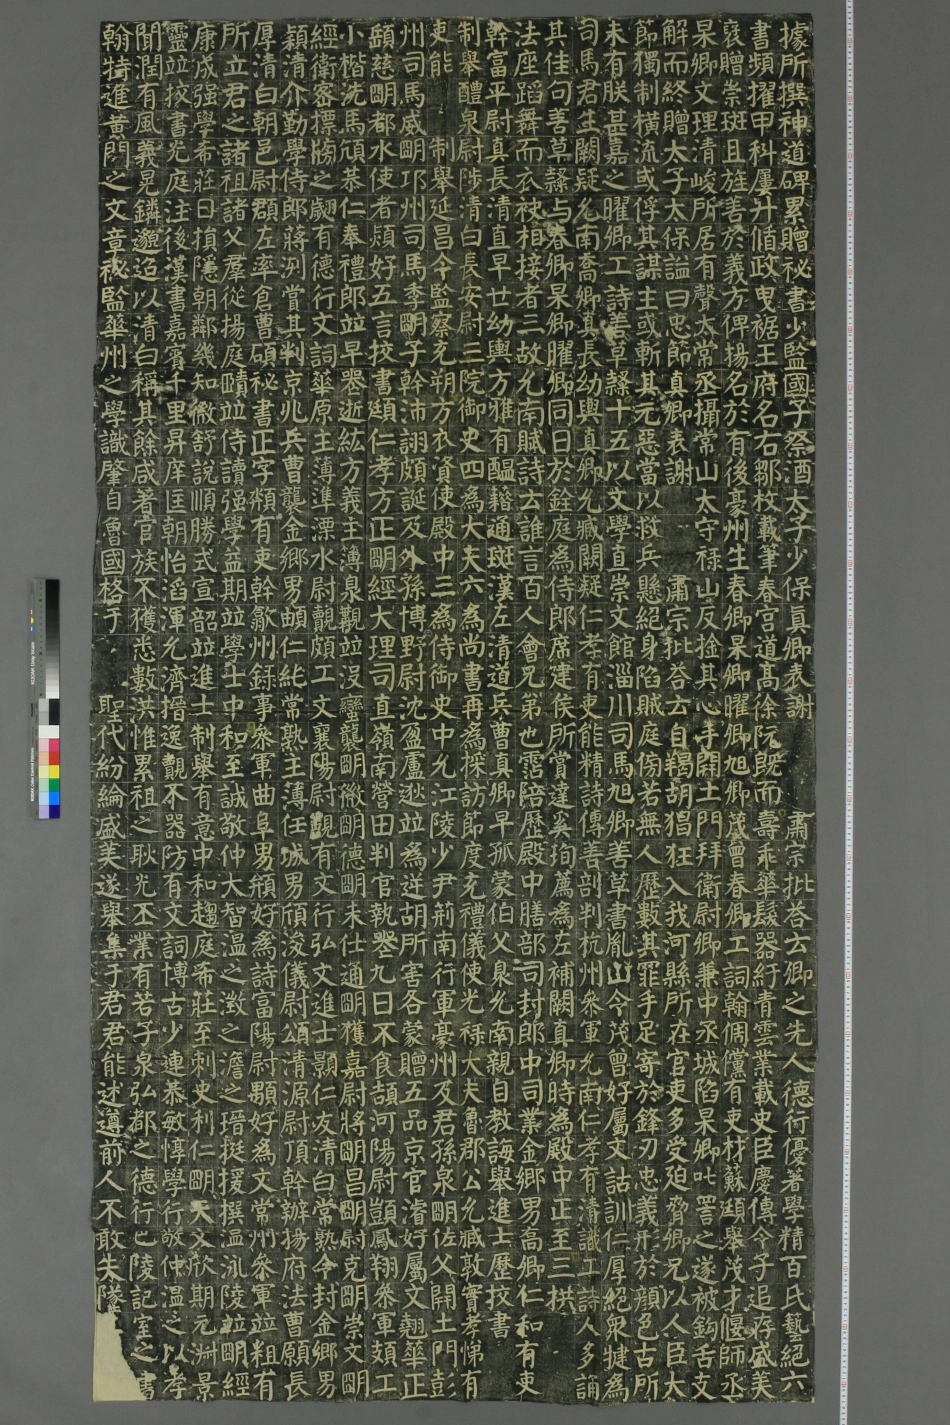 據所撰神道碑累贈秘書少監國子祭酒太子少保真卿表謝 肅宗批荅云卿之先人德行優著學精百氏藝絕六
書頻擢甲科屢升循政曳裾王府名右鄒枚載筆春宮道髙徐阮旣而壽乖華髮器紆青雲業載史臣慶傳令子追存盛美
褒贈崇班且旌善於義方俾揚名於有後豪州生春卿杲卿曜卿旭卿茂曾春卿工詞翰倜儻有吏材蘇頲舉茂才偃師丞
杲卿文理清峻所居有聲太常丞攝常山太守祿山反捡其心手開土門拜衛尉卿兼中丞城陷杲卿叱詈之遂被鈎舌支
解而終贈太子太保謚曰忠節真卿表謝 肅宗批荅云自羯胡猖狂入我河縣所在官吏多受迫脅卿兄以人臣大
節獨制橫流或俘其謀主或斬其元惡當以救兵懸絕身陷賊庭傍若無人歷數其罪手足寄於鋒刃忠義形於顏色古所
未有朕甚嘉之曜卿工詩善草隸十五以文學直崇文館淄川司馬旭卿善草書胤山令茂曾好屬文詁訓仁厚絕衆犍為
司馬君生闕疑允南喬卿真長幼輿真卿允臧闕疑仁孝有吏能精詩傳善剖判杭州參軍允南仁孝有清識工詩人多誦
其佳句善草隸与春卿杲卿曜卿同日於銓庭為侍郎席建侯所賞達奚珣薦為左補闕真卿時為殿中正至三拱
法座蹈舞而衣袂相接者三故允南賦詩云誰言百人會兄弟也霑陪歷殿中膳部司封郎中司業金鄉男喬卿仁和有吏
幹富平尉真長清直早世幼輿方雅有醞藉通班漢左清道兵曹真卿早孤蒙伯父臮允南親自教誨舉進士歷校書
制舉醴泉尉陟清白長安尉三院御史四為大夫六為尚書再為採訪節度充禮儀使光祿大夫魯郡公允臧敦實孝悌有
吏能 制舉延昌令監察充朔方衣資使殿中三為侍御史中允江陵少尹荊南行軍豪州及君孫泉明佐父開土門彭
州司馬威明邛州司馬季明子幹沛詡頗誕及外孫博野尉沈盈盧逖並為逆胡所害各蒙贈五品京官濬好屬文翹華正
頤慈明都水使者熲好五言校書頲仁孝方正明經大理司直嶺南營田判官執喪九日不食頡河陽尉顗鳳翔參軍頍工
小楷洗馬頎恭仁奉禮郎並早喪逝紘方義主簿泉覿並沒蠻龔明徽明德明未仕通明獲嘉尉將明昌明尉克明崇文明
經衛密摽牓之翽有德行文詞華原主簿準溧水尉覿頗工文襄陽尉覬有文行弘文進士顥仁友清白常熟令封金鄉男
潁清介勤學侍郎蔣洌賞其判京兆兵曹襲金鄉男頔仁純常熟主簿任城男頎浚儀尉頌清源尉頂幹辦揚府法曹願長
厚清白朝邑尉頵左率倉曹碩秘書正字頫有吏幹歙州錄事參軍曲阜男頯好為詩富陽尉顤好為文常州參軍並粗有
所立君之諸祖諸父群從揚庭賾並侍讀强學益期並學士中和至誠敬仲大智溫之澂之澹之瑨挺援撰溫泳陵並明經
康成强學希莊日損隱朝鄰幾知微舒說順勝式宣韶並進士制舉有意中和趨庭希莊至刺史利仁明天文欣期元淑景
靈並挍書光庭注後漢書嘉賓千里昇庠匡朝怡滔渾允濟措逸覿不器防有文詞博古少連恭敏惇學行敬仲溫之以孝
聞潤有風義晃鏻邈迢以清白稱其餘咸著官族不獲悉數洪惟累祖之耿光丕業有若子泉弘都之德行巴陵記室之書
翰特進黃門之文章秘監華州之學識肇自魯國格于 聖代紛綸盛美遂舉集于君君能述遵前人不敢失墜